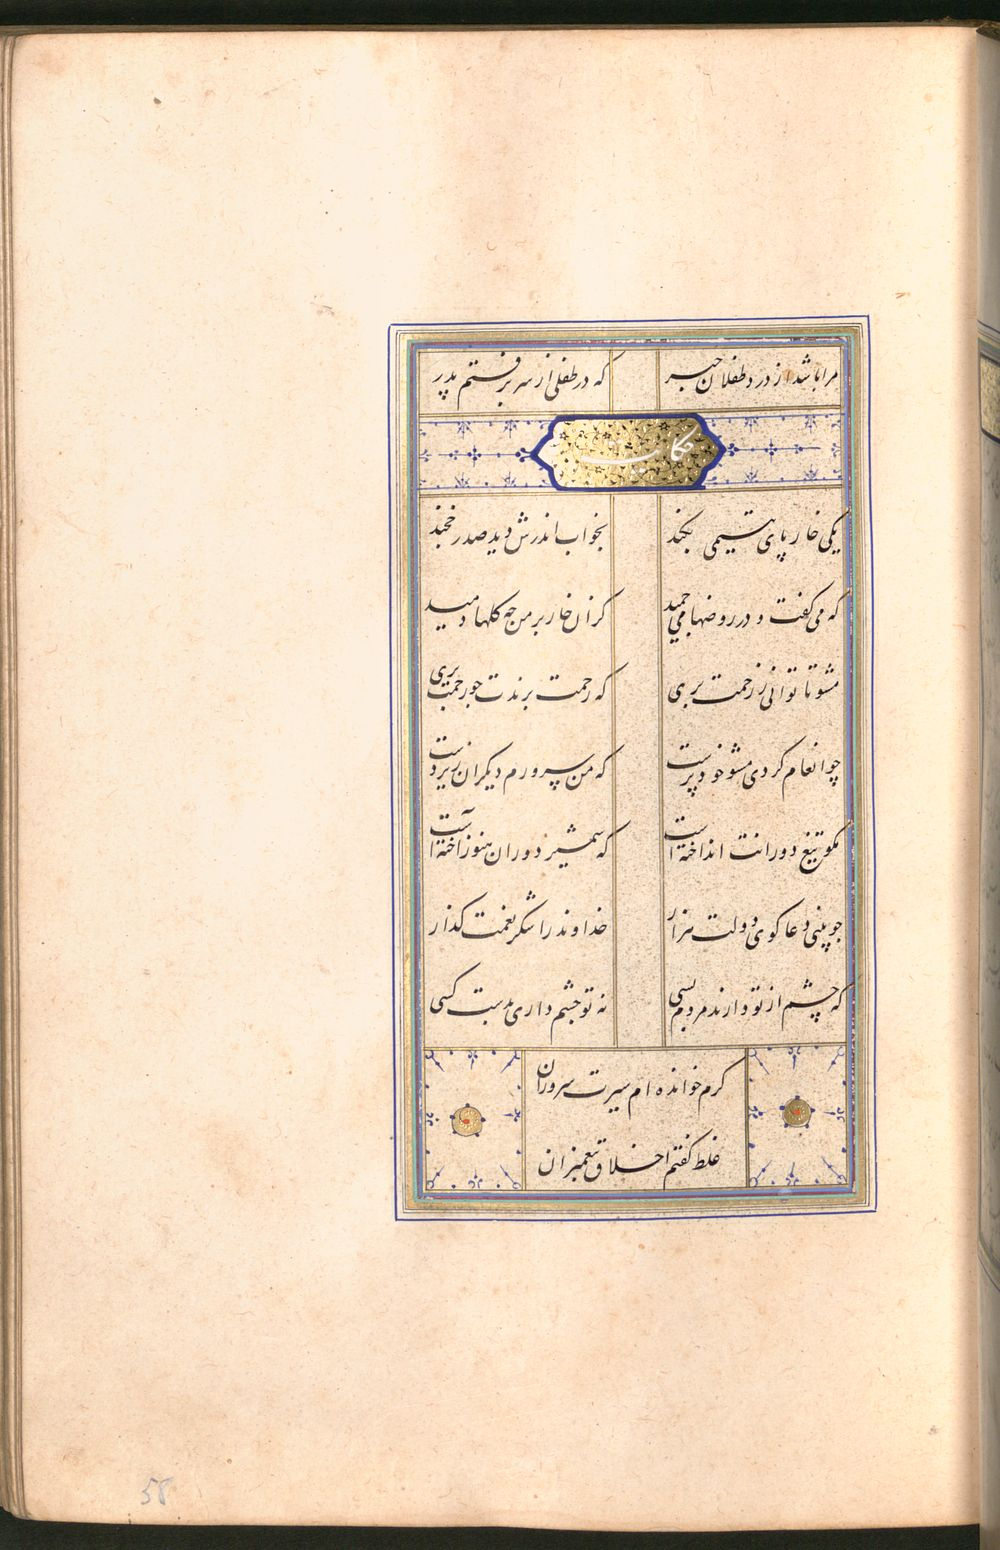 مرا باشد از درد طفلان خبر که در طفلی از سر برفتم پدر
حکایت
یکی خار پای یتیمی بکند بخواب اندرش دید صدر خجند
که می گفت و در روضها می جمید کزان خار بر من چه گلها دمید
مشو تا توانی ز زحمت بری که رحمت برندت چو رحمت بری
چو انعام کردی مشو خود پرست که من سرورم دیگران زیردست
مگو تیغ دورانت انداخته است که شمشیر دوران هنوز آخته است
چو بینی دعا کوی دولت هزار خداوند را شکر نعمت کذار
که چشم از تو دارند مردم بسی نه تو چشم داری بدست کسی
کرم خوانده ام سیرت سروران
غلط کفتم اخلاق پیغمبران
58